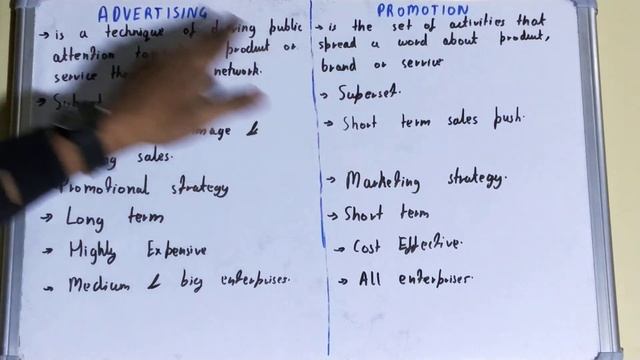 ADVERTISING
→ is a technique of driving public
attention to product or
service th network.
→ Sub
image &
sales.
Promotional strategy
→ Long term
→ Highly Expensive
→ Medium & big enterprises.
PROMOTION
→ is the set of activities that
spread a word about product,
brand or service
→ Superset.
→ Short term sales push.
→ Marketing strategy.
→ Short term
→ Cost Effective.
→ All enterprises.